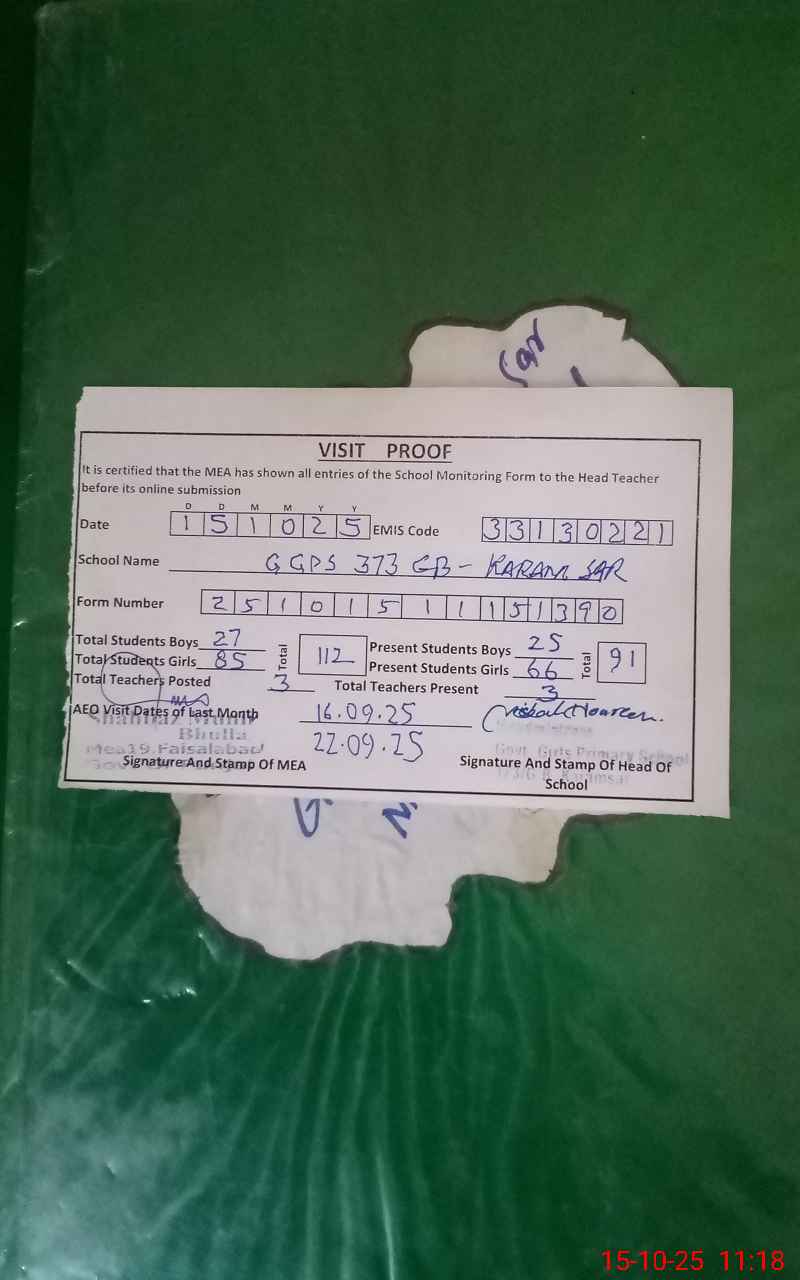 Sar
VISIT PROOF
It is certified that the MEA has shown all entries of the School Monitoring Form to the Head Teacher
before its online submission
D D M M Y Y
Date 1 5 1 0 2 5 EMIS Code 3 3 1 3 0 2 2 1
School Name G GPS 373 GB - KARAM SAR
Form Number 2 5 1 0 1 5 1 1 1 5 1 3 9 0
Total Students Boys 27 Total 112 Present Students Boys 25 Total 91
Total Students Girls 85 Present Students Girls 66
Total Teachers Posted 3 Total Teachers Present 3
AEO Visit Dates of Last Month 16.09.25
22.09.25
Bhulla
Mea19.Faisalabad
Govt. Girls Primary School
Signature And Stamp Of MEA Signature And Stamp Of Head Of
School
15-10-25 11:18